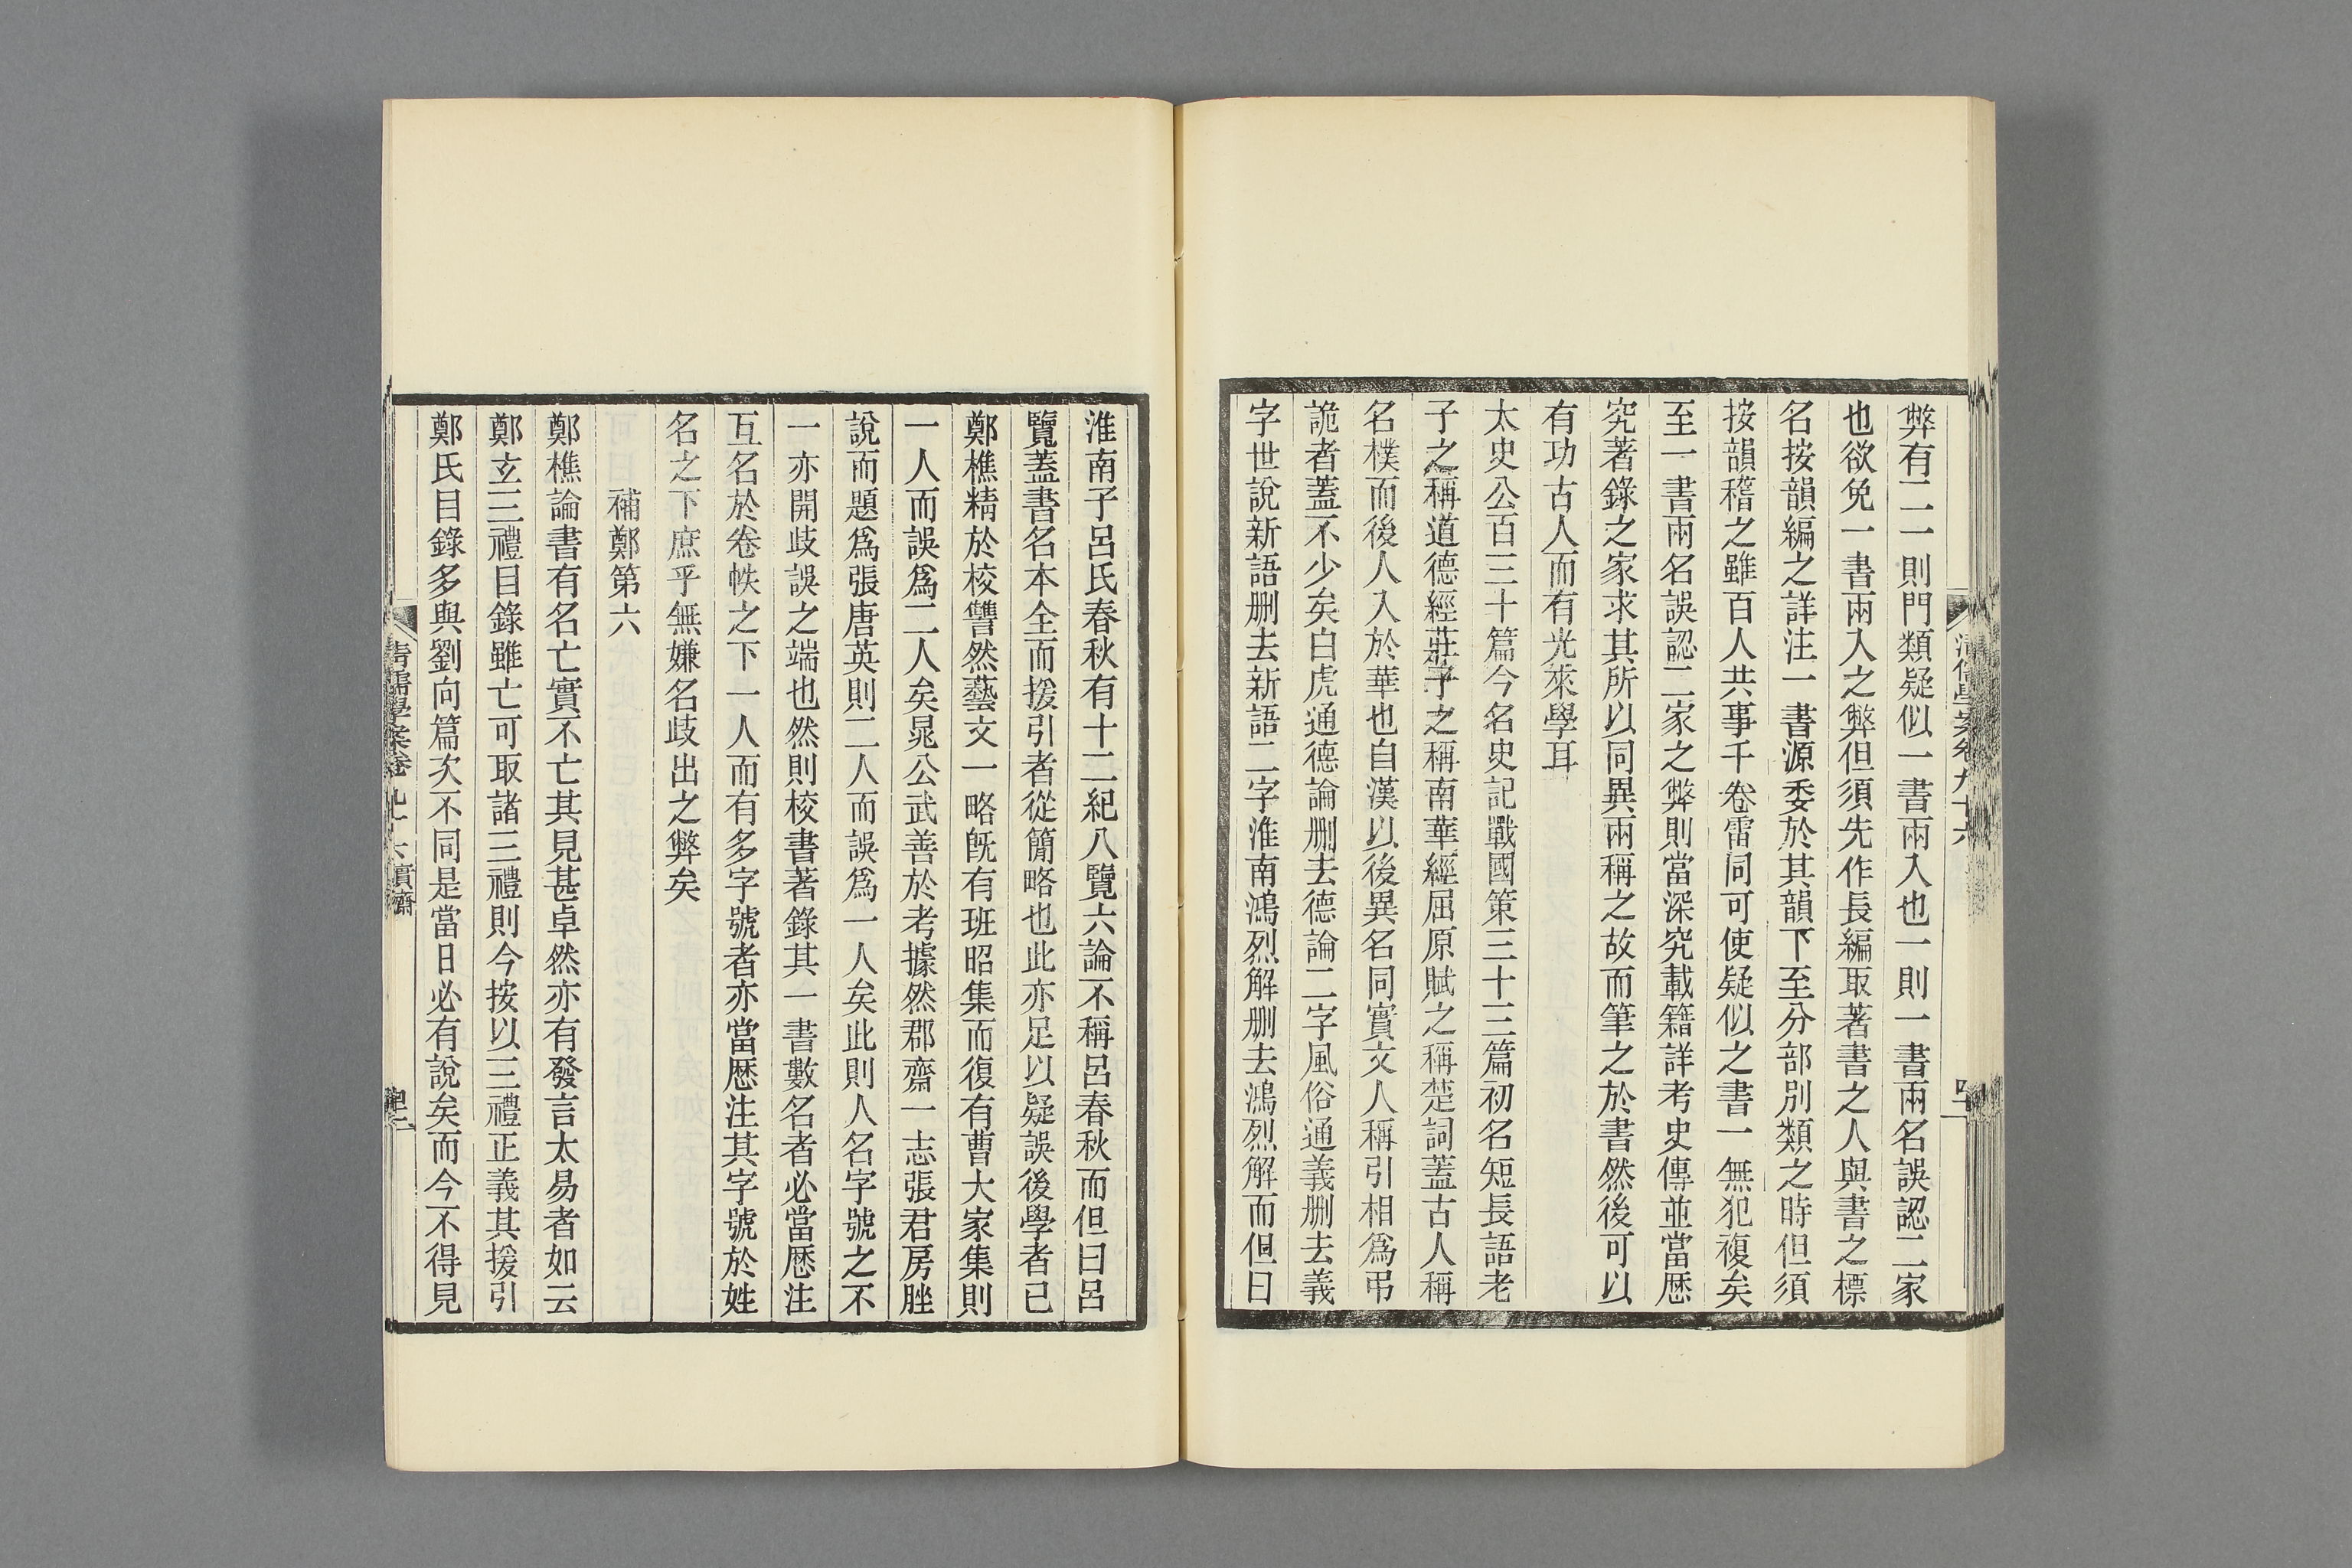 弊有二一則門類疑似一書兩入也一則一書兩名誤認二家
也欲免一書兩入之弊但須先作長編取著書之人與書之標
名按韻編之詳注一書源委於其韻下至分部別類之時但須
按韻稽之雖百人共事千卷雷同可使疑似之書一無犯複矣
至一書兩名誤認二家之弊則當深究載籍詳考史傳並當歷
究著錄之家求其所以同異兩稱之故而筆之於書然後可以
有功古人而有光來學耳
太史公百三十篇今名史記戰國策三十三篇初名短長語老
子之稱道德經莊子之稱南華經屈原賦之稱楚詞蓋古人稱
名樸而後人入於華也自漢以後異名同實文人稱引相爲弔
詭者蓋不少矣白虎通德論删去德論二字風俗通義删去義
字世說新語删去新語二字淮南鴻烈解删去鴻烈解而但曰
淮南子呂氏春秋有十二紀八覽六論不稱呂春秋而但曰呂
覽蓋書名本全而援引者從簡略也此亦足以疑誤後學者已
鄭樵精於校讐然藝文一略旣有班昭集而復有曹大家集則
一人而誤爲二人矣晁公武善於考據然郡齋一志張君房脞
說而題爲張唐英則二人而誤爲一人矣此則人名字號之不
一亦開歧誤之端也然則校書著錄其一書數名者必當歷注
互名於卷帙之下一人而有多字號者亦當歷注其字號於姓
名之下庶乎無嫌名歧出之弊矣
補鄭第六
鄭樵論書有名亡實不亡其見甚卓然亦有發言太易者如云
鄭玄三禮目錄雖亡可取諸三禮則今按以三禮正義其援引
鄭氏目錄多與劉向篇次不同是當日必有說矣而今不得見
清儒學案卷九十六實齋